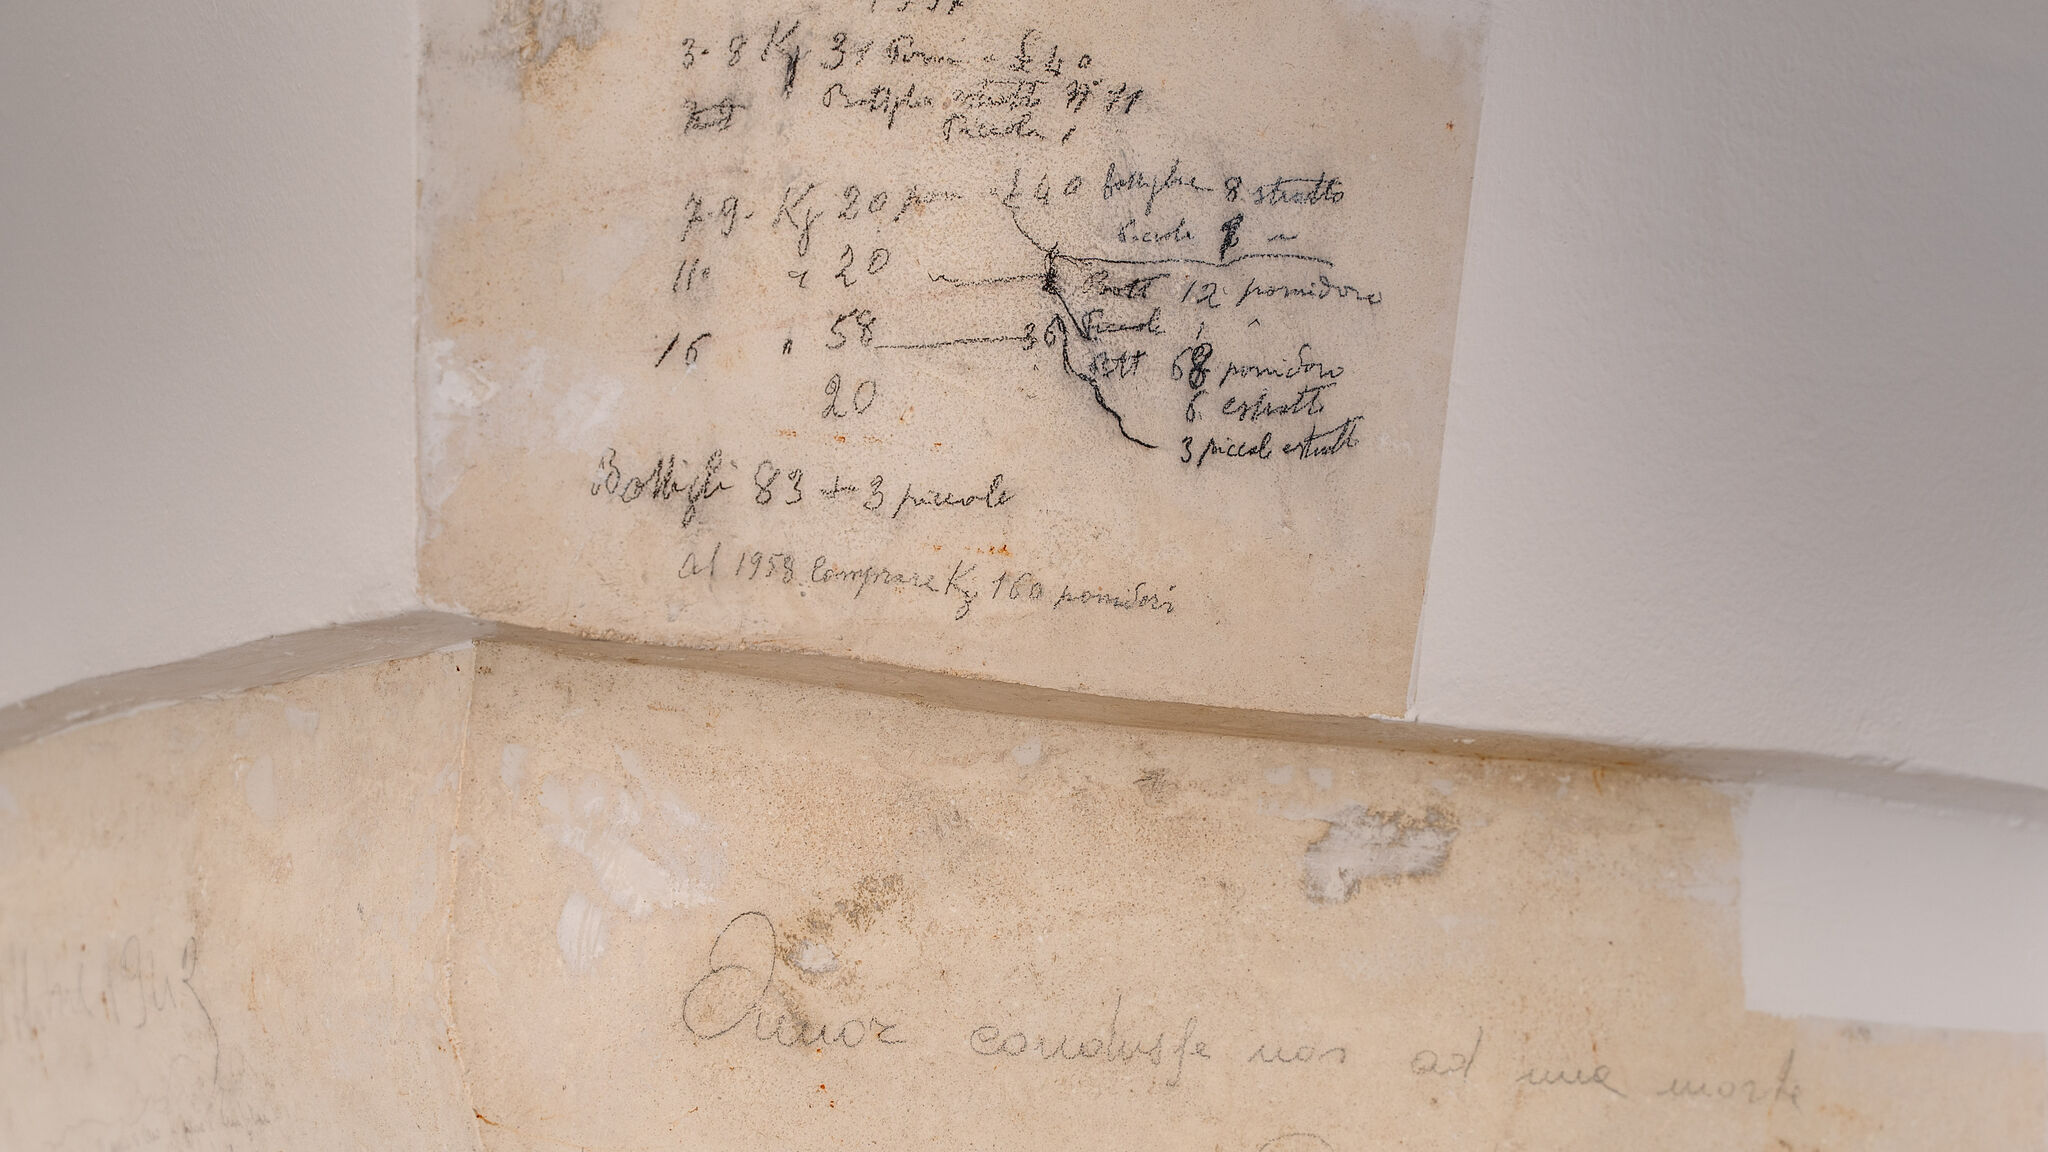 3-8 Kg 31 Pomi a £ 40
Bottiglie estratto N° 11
Piccola 1
7-9- Kg 20 pom a £ 40 bottiglie 8 stratto
Piccole
11 " 20 Bott 12 pomidoro
Piccole 1 "
16 " 58 36 Bott 68 pomidoro
20 6 estratto
3 piccole estratto
Bottigli 83 + 3 piccole
Al 1958 Comprare Kg 160 pomidori
Amor condusse noi ad una morte